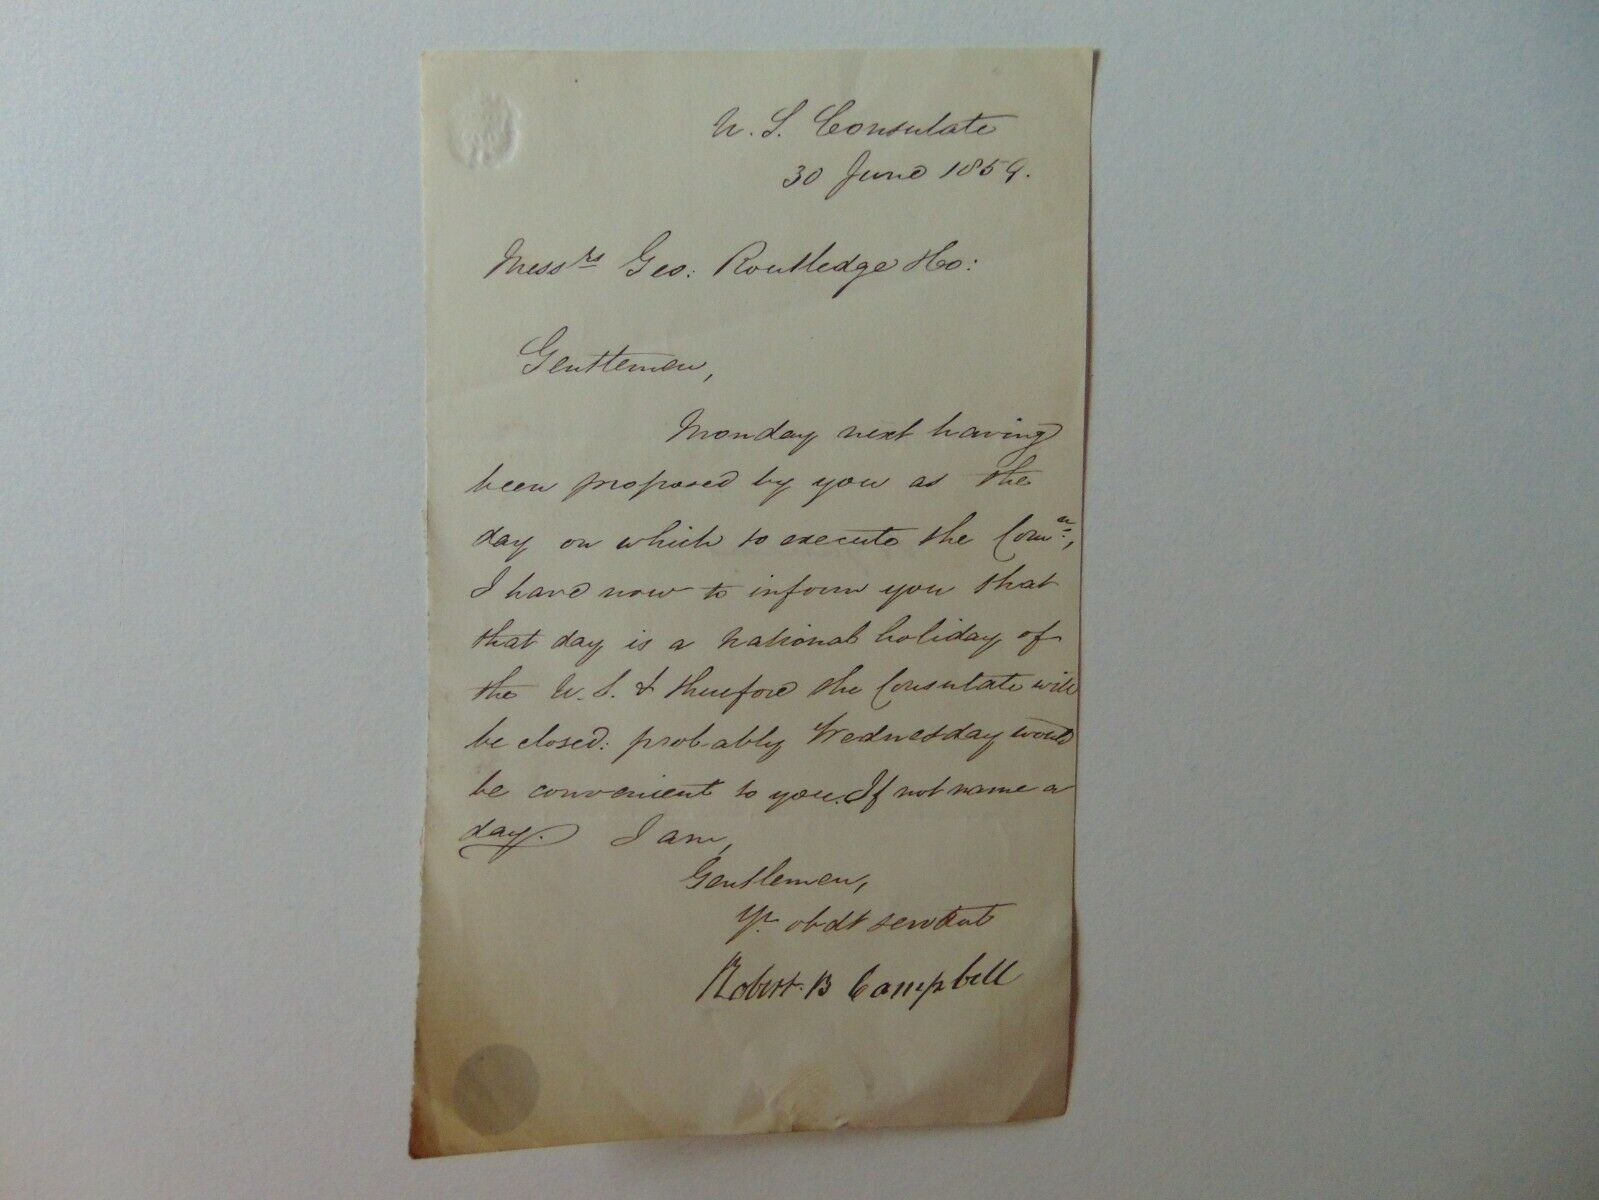 U. S. Consulate
30 June 1859.
Messrs Geo: Routledge & Co:
Gentlemen,
Monday next having
been proposed by you as the
day on which to execute the Comn:,
I have now to inform you that
that day is a national holiday of
the U. S. & therefore the Consulate will
be closed: probably Wednesday would
be convenient to you. If not name a
day. I am,
Gentlemen,
Yr obdt servant
Robert. B Campbell